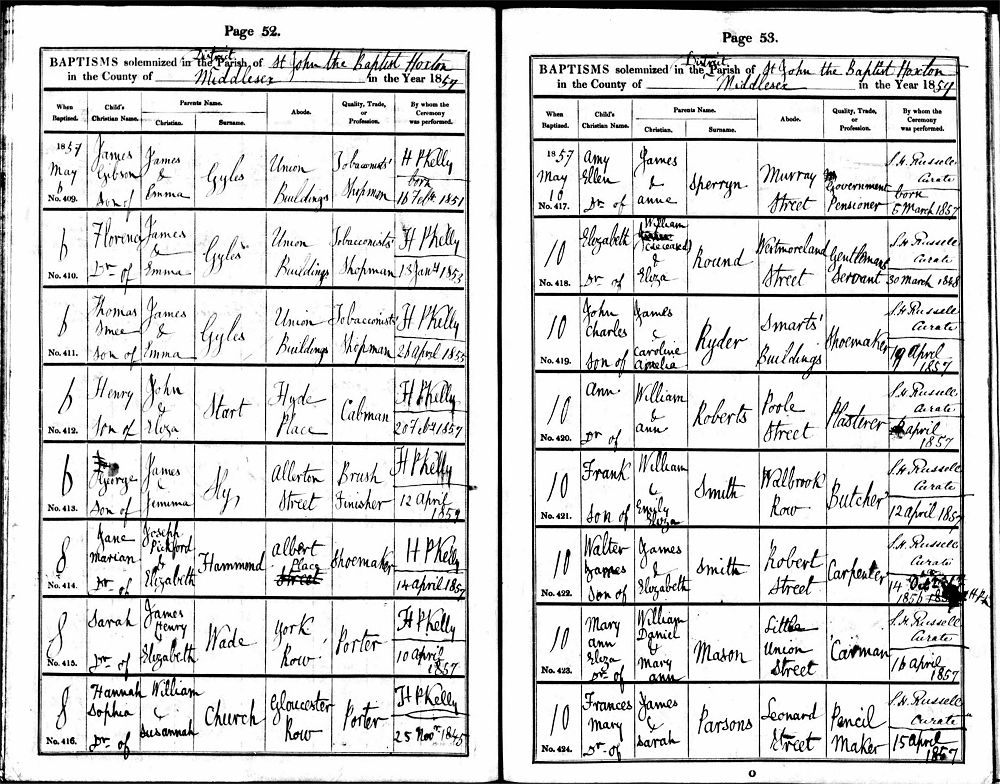 Page 52.
District
BAPTISMS solemnized in the Parish of St John the Baptist Hoxton
in the County of Middlesex in the Year 1857
When Baptized. Child's Christian Name. Parents Name. Christian. Surname. Abode. Quality, Trade, or Profession. By whom the Ceremony was performed.
1857 James James Union Tobacconists' H P Kelly
May Gibson & Gyles born
6 Son of Emma Buildings Shopman 16 Feb 1851
No. 409.
6 Florence James Union Tobacconists' H P Kelly
& Gyles
No. 410. Dr of Emma Buildings Shopman 13 Jany 1853
6 Thomas James Union Tobacconists' H P Kelly
Smee & Gyles
No. 411. Son of Emma Buildings Shopman 28 April 1855
6 Henry John Hyde H P Kelly
& Start Cabman
No. 412. Son of Eliza Place 20 Feb 1857
6 George James Allerton Brush H P Kelly
& Sly
No. 413. Son of Jemima Street Finisher 12 April 1857
8 Jane Joseph Albert H P Kelly
Marian Pickford & Hammond Place Shoemaker
No. 414. Dr of Elizabeth Street 14 April 1857
8 Sarah James York H P Kelly
Henry & Wade Porter
No. 415. Dr of Elizabeth Row 10 April 1857
8 Hannah William Gloucester H P Kelly
Sophia & Church Porter
No. 416. Dr of Susannah Row 25 Novr 1845
Page 53.
District
BAPTISMS solemnized in the Parish of St John the Baptist Hoxton
in the County of Middlesex in the Year 1857
When Baptized. Child's Christian Name. Parents Name. Christian. Surname. Abode. Quality, Trade, or Profession. By whom the Ceremony was performed.
1857 Amy James Murray Government S. H. Russell
May Ellen & Sperryn Curate
10 Dr of Anne Street Pensioner born
No. 417. 5 March 1857
10 Elizabeth William Westmoreland Gentlemans S. H. Russell
(deceased) & Round Curate
No. 418. Dr of Eliza Street Servant 30 March 1848
10 John James Smarts' S. H. Russell
Charles & Ryder Shoemaker Curate
No. 419. Son of Caroline Amelia Buildings 19 April 1857
10 Ann William Poole S. H. Russell
& Roberts Plasterer Curate
No. 420. Dr of Ann Street April 1857
10 Frank William Walbrook S. H. Russell
& Smith Butcher Curate
No. 421. Son of Emily Eliza Row 12 April 1857
10 Walter James Robert S. H. Russell
James & Smith Carpenter Curate
No. 422. Son of Elizabeth Street 14 Oct 1856
10 Mary William Little S. H. Russell
Ann Daniel Union Carman Curate
Eliza & Mason
No. 423. Dr of Mary Ann Street 16 April 1857
10 Frances James Leonard Pencil S. H. Russell
Mary & Parsons Curate
No. 424. Dr of Sarah Street Maker 15 April 1857
O